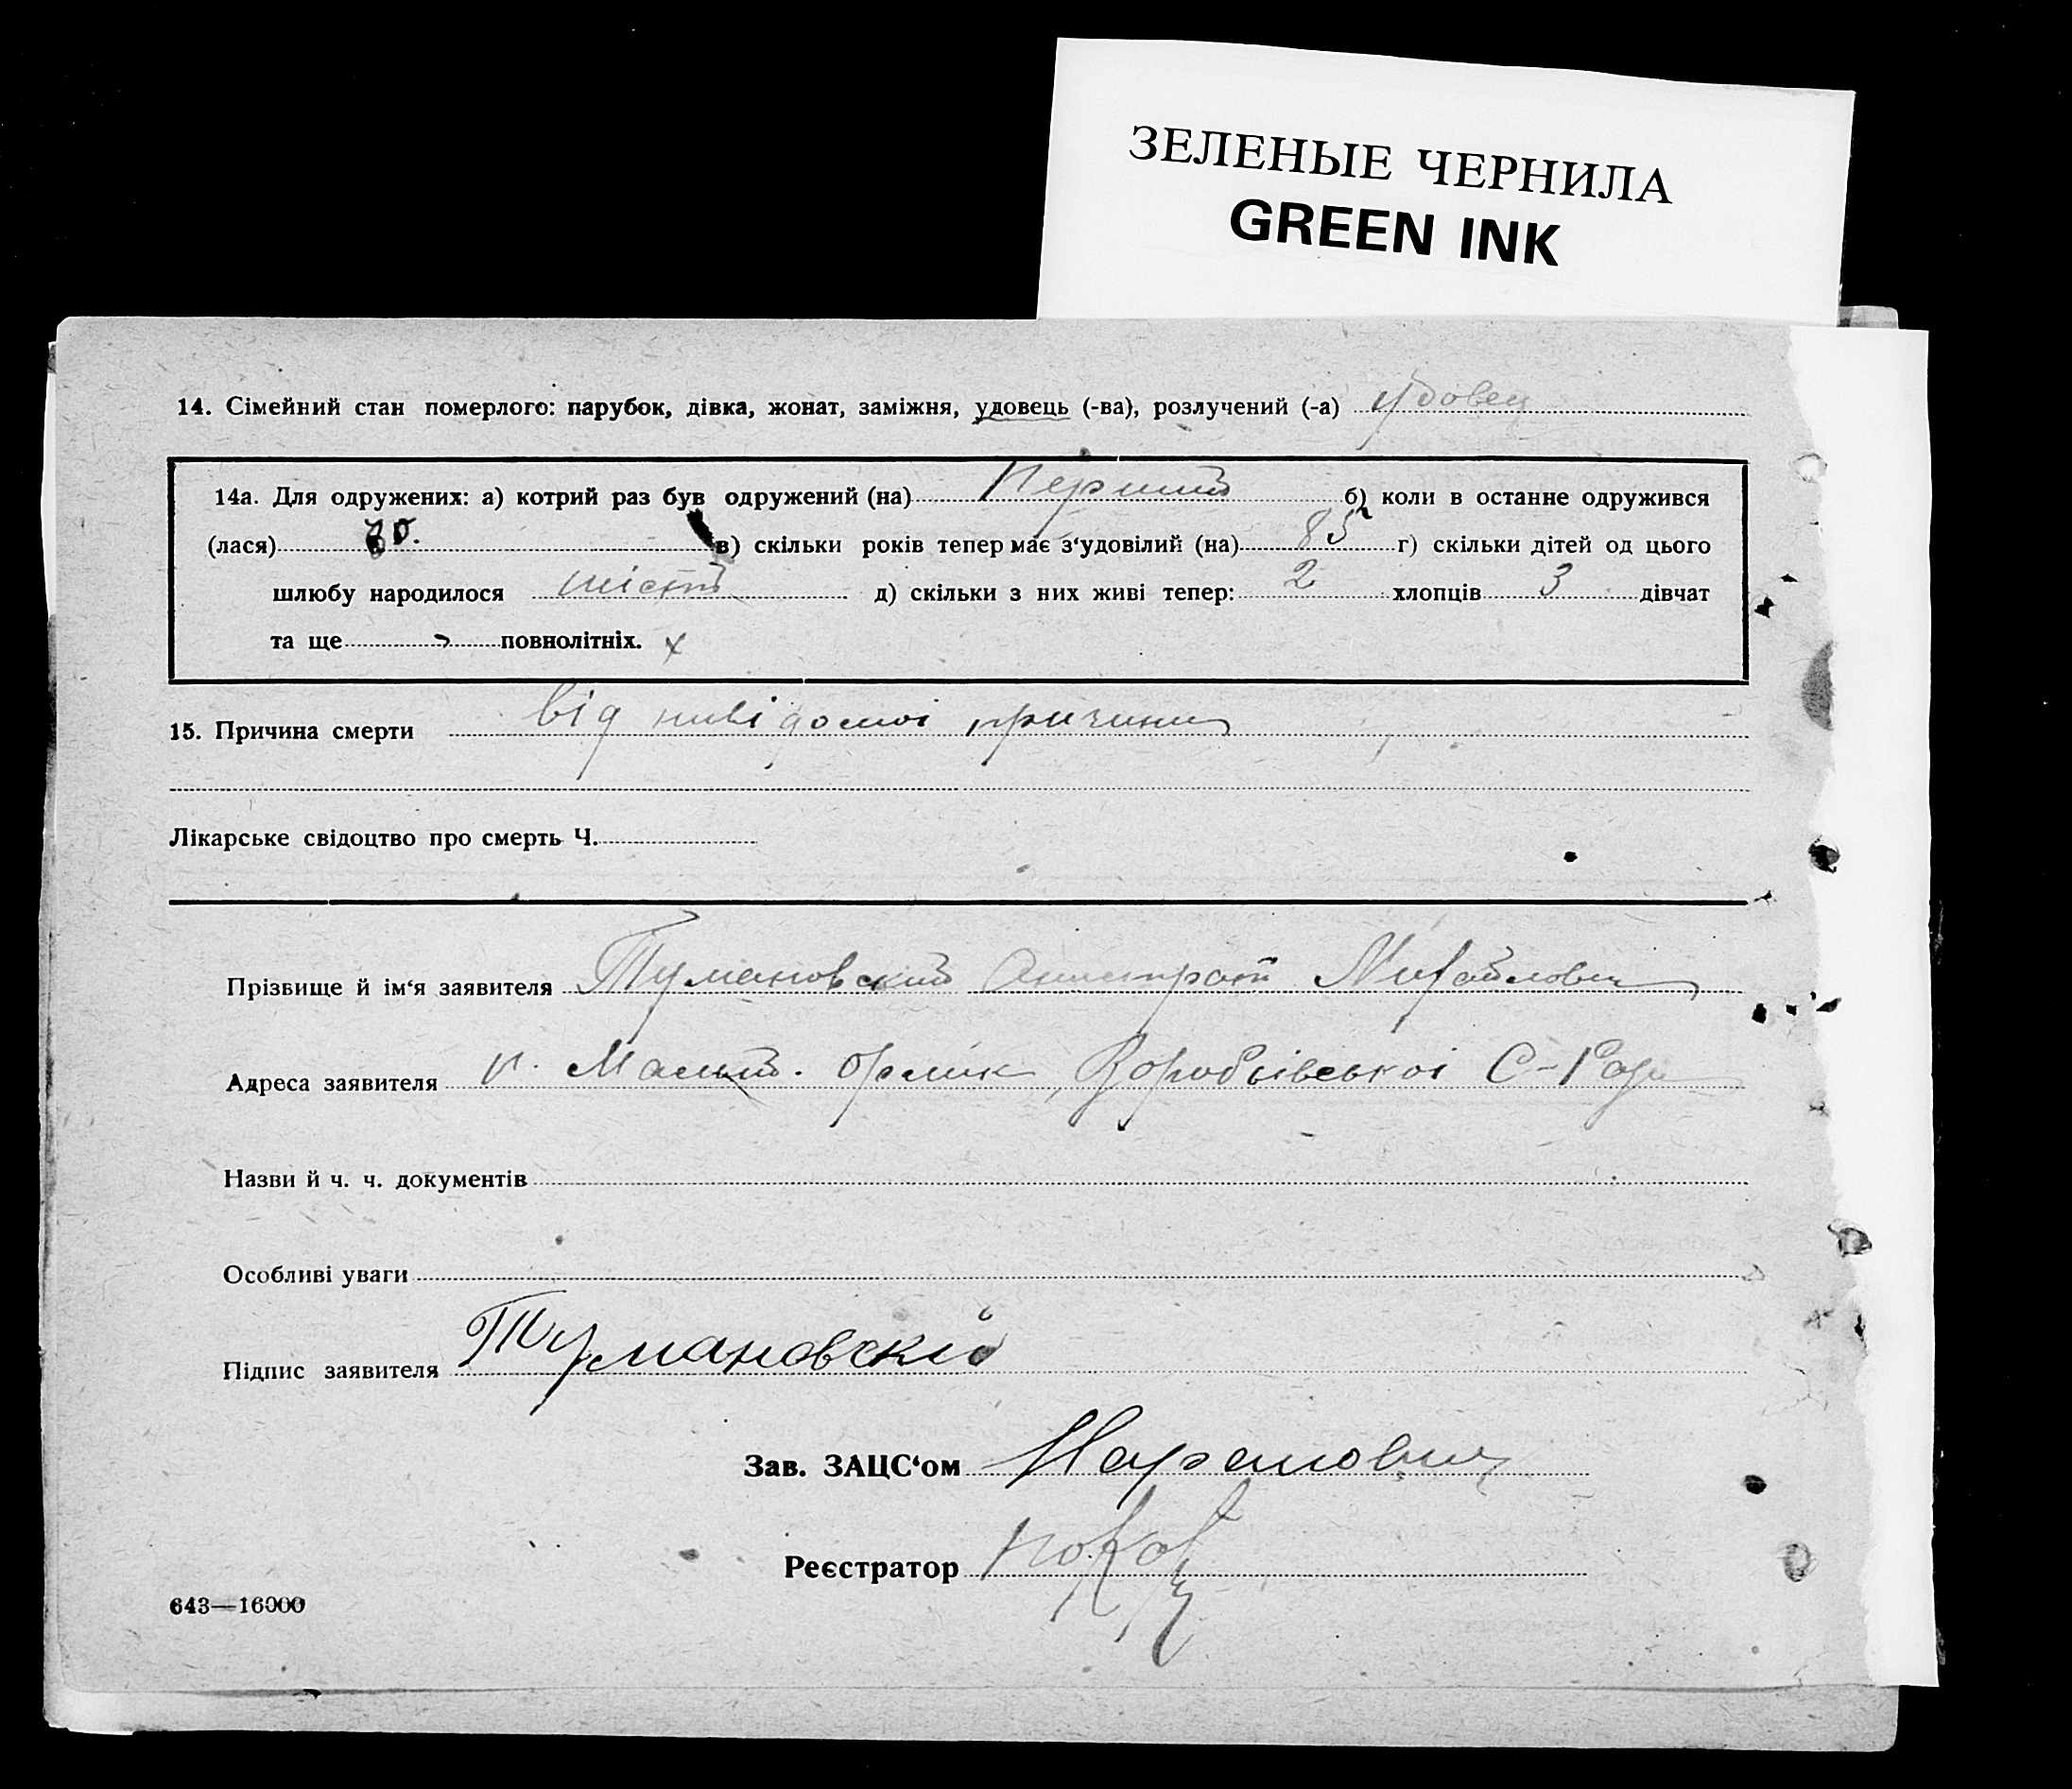 ЗЕЛЕНЫЕ ЧЕРНИЛА
GREEN INK
14. Сімейний стан померлого: парубок, дівка, жонат, заміжня, удовець (-ва), розлучений (-а) удовец
14а. Для одружених: а) котрий раз був одружений (на) Перший б) коли в останне одружився
(лася) в) скільки років тепер має з‘удовілий (на) 85 г) скільки дітей од цього
шлюбу народилося шість д) скільки з них живі тепер: 2 хлопців 3 дівчат
та ще повнолітніх. х
15. Причина смерти від невідомої причини
Лікарське свідоцтво про смерть Ч.
Прізвище й ім‘я заявителя Тумановский Михайлович
Адреса заявителя Орлик, Воробьівської С-Ради
Назви й ч. ч. документів
Особливі уваги
Підпис заявителя Тумановскій
Зав. ЗАЦС‘ом
Реєстратор
643—16000